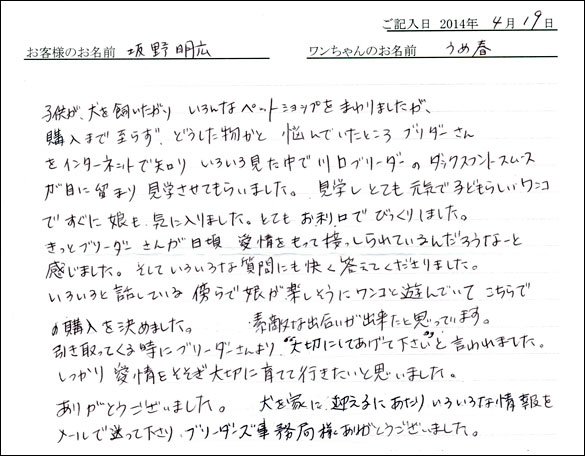 ご記入日 2014年 4月 19日
お客様のお名前 坂野明広 ワンちゃんのお名前 うめ春
子供が、犬を飼いたがり いろんなペットショップをまわりましたが、
購入まで至らず、どうした物かと 悩んでいたところ ブリダーさん
をインターネットで知り いろいろ見た中で川口ブリーダーの ダックスフントスムース
が目に留まり 見学させてもらいました。 見学し とても 元気で子どもらしいワンコ
で すぐに 娘も 気に入りました。とても お利口で びっくりしました。
きっとブリーダー さんが日頃 愛情をもって接っしられているんだろうなーと
感じました。そしていろいろな質問にも快く答えてくださりました。
いろいろと話している 傍らで娘が楽しそうにワンコと遊んでいて こちらで
の購入を決めました。 素敵な出合いが出来たと思っています。
引き取ってくる時にブリーダーさんより "大切にしてあげて下さい"と言われました。
しっかり 愛情をそそぎ大切に育てて行きたいと思いました。
ありがとうございました。 犬を家に迎えるにあたりいろいろな情報を
メールで送って下さり、ブリーダーズ事務局様にありがとうございました。